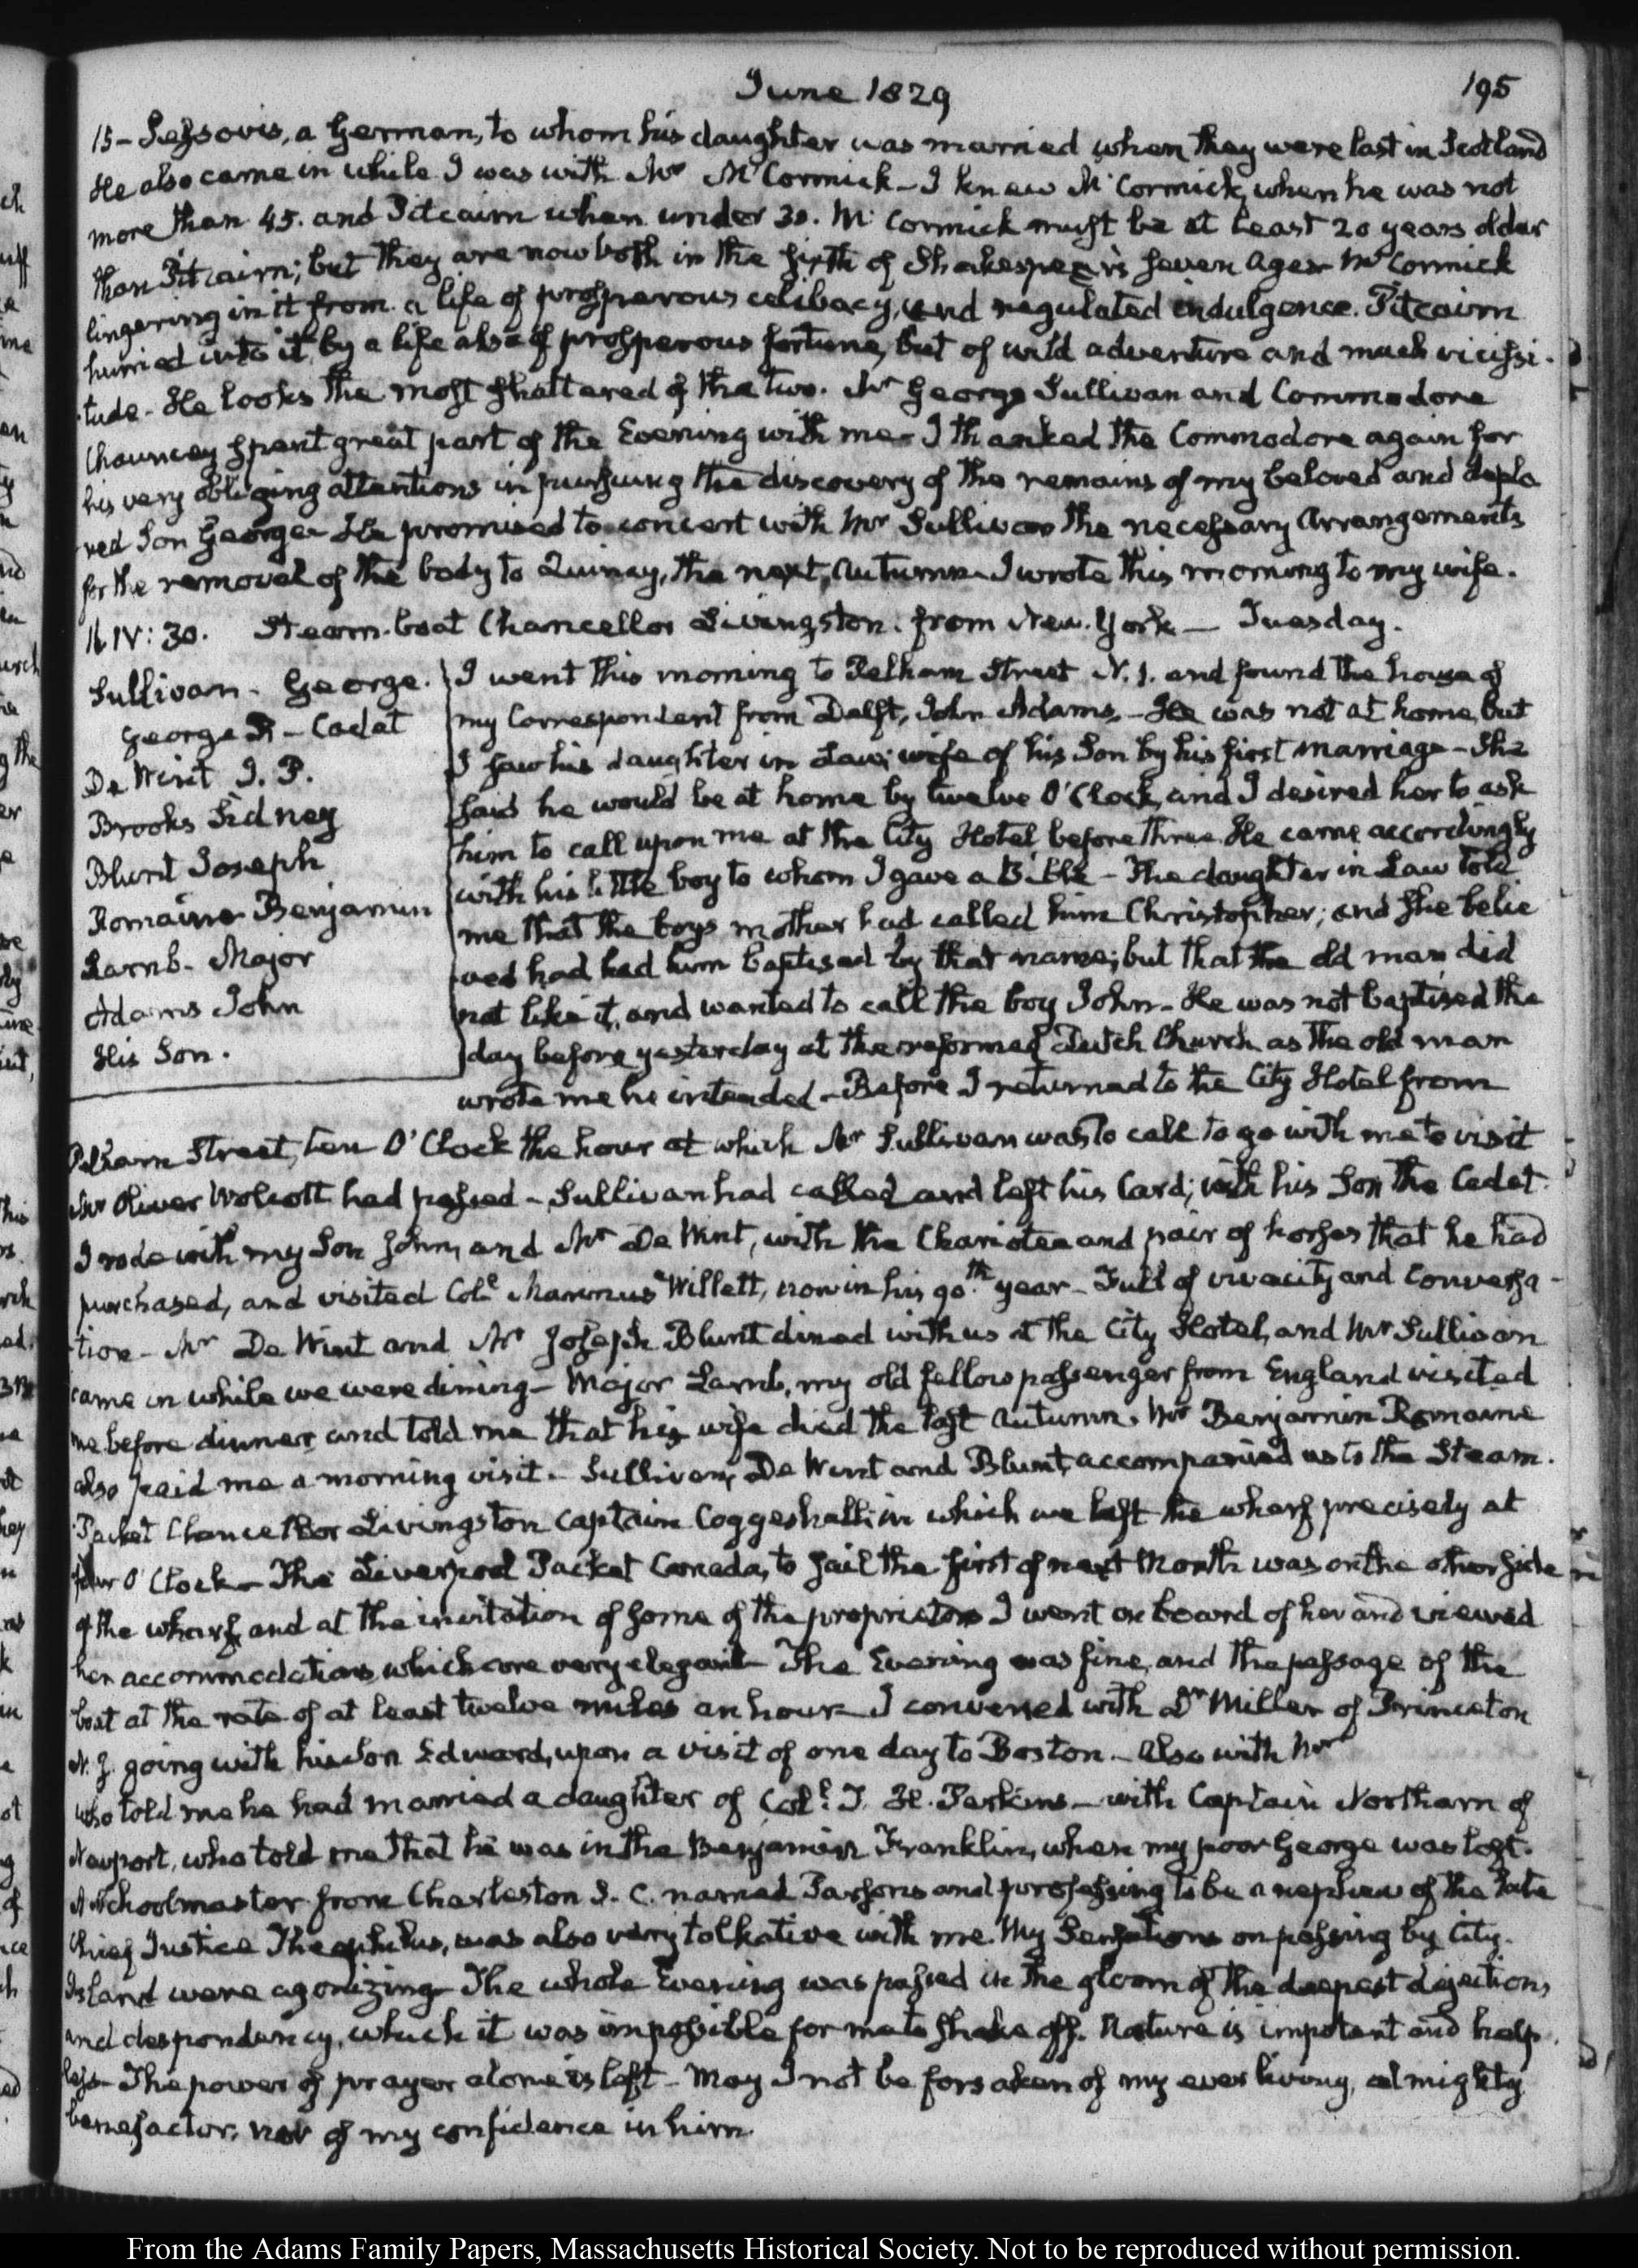 June 1829
195
15 - a German, to whom his daughter was married when they were last in Scotland
He also came in while I was with Mr McCormick - I knew McCormick, when he was not
more than 45. and Pitcairn when under 30. McCormick must be at least 20 years older
than Pitcairn; but they are now both in the sixth of Shakespear's seven ages - McCormick
lingering in it from a life of prosperous celibacy, and regulated indulgence. Pitcairn
hurried into it, by a life also of prosperous fortune, but of wild adventure and much vicissi-
-tude. He looks the most shattered of the two. Mr George Sullivan and Commodore
Chauncey spent great part of the Evening with me - I thanked the Commodore again for
his very obliging attentions in pursuing the discovery of the remains of my beloved and deplo
-red Son George - He promised to concert with Mr Sullivan the necessary arrangements
for the removal of the body to Quincy, the next Autumn - I wrote this morning to my wife.
16. IV: 30. Steam-boat Chancellor Livingston. from New-York - Tuesday.
Sullivan - George.
George R - Cadet
De Wint J. P.
Brooks Sidney
Blunt Joseph
Romaine Benjamin
Lamb - Major
Adams John
His Son.
I went this morning to Pelham Street N. 1. and found the house of
my Correspondent from Delft, John Adams - He was not at home, but
I saw his daughter in Law; wife of his Son by his first marriage - She
said he would be at home by twelve O'Clock, and I desired her to ask
him to call upon me at the City Hotel before three. He came accordingly
with his little boy to whom I gave a Bible - The daughter in Law told
me that the boys mother had called him Christopher; and she belie
ved had had him baptised by that name; but that the old man did
not like it, and wanted to call the boy John - He was not baptised the
day before yesterday at the reformed Dutch Church as the old man
wrote me he intended - Before I returned to the City Hotel from
Pelham Street, ten O'Clock the hour at which Mr Sullivan was to call to go with me to visit
Mr Oliver Wolcott had passed - Sullivan had called and left his Card; with his Son the Cadet.
I rode with my Son John, and Mr De Wint, with the Chariotee and pair of horses that he had
purchased, and visited Coll. Marinus Willett, now in his 90th. year - Full of vivacity and Conversa-
-tion - Mr De Wint and Mr Joseph Blunt dined with us at the City Hotel, and Mr Sullivan
came in while we were dining - Major Lamb, my old fellow passenger from England visited
me before dinner and told me that his wife died the last Autumn. Mr Benjamin Romaine
also paid me a morning visit - Sullivan, De Wint and Blunt, accompanied us to the Steam-
-Packet Chancellor Livingston Captain Coggeshall; in which we left the wharf precisely at
four O'Clock - The Liverpool Packet Canada, to sail the first of next Month was on the other side
of the wharf, and at the invitation of some of the proprietors I went on board of her and viewed
her accommodations which are very elegant - The Evening was fine, and the passage of the
boat at the rate of at least twelve miles an hour - I conversed with Dr Miller of Princeton
N. J. going with his Son Edward, upon a visit of one day to Boston - also with Mr
who told me he had married a daughter of Coll. T. H. Perkins - with Captain Northam of
Newport, who told me that he was in the Benjamin Franklin, when my poor George was lost.
A Schoolmaster from Charleston S. C. named Parsons and professing to be a nephew of the late
Chief Justice Theophilus, was also very talkative with me. My Sensations on passing by City-
Island were agonizing - The whole Evening was passed in the gloom of the deepest dejection,
and despondency, which it was impossible for me to shake off. Nature is impotent and help-
less - The power of prayer alone is left - May I not be forsaken of my ever living, almighty
benefactor, nor of my confidence in him.
From the Adams Family Papers, Massachusetts Historical Society. Not to be reproduced without permission.